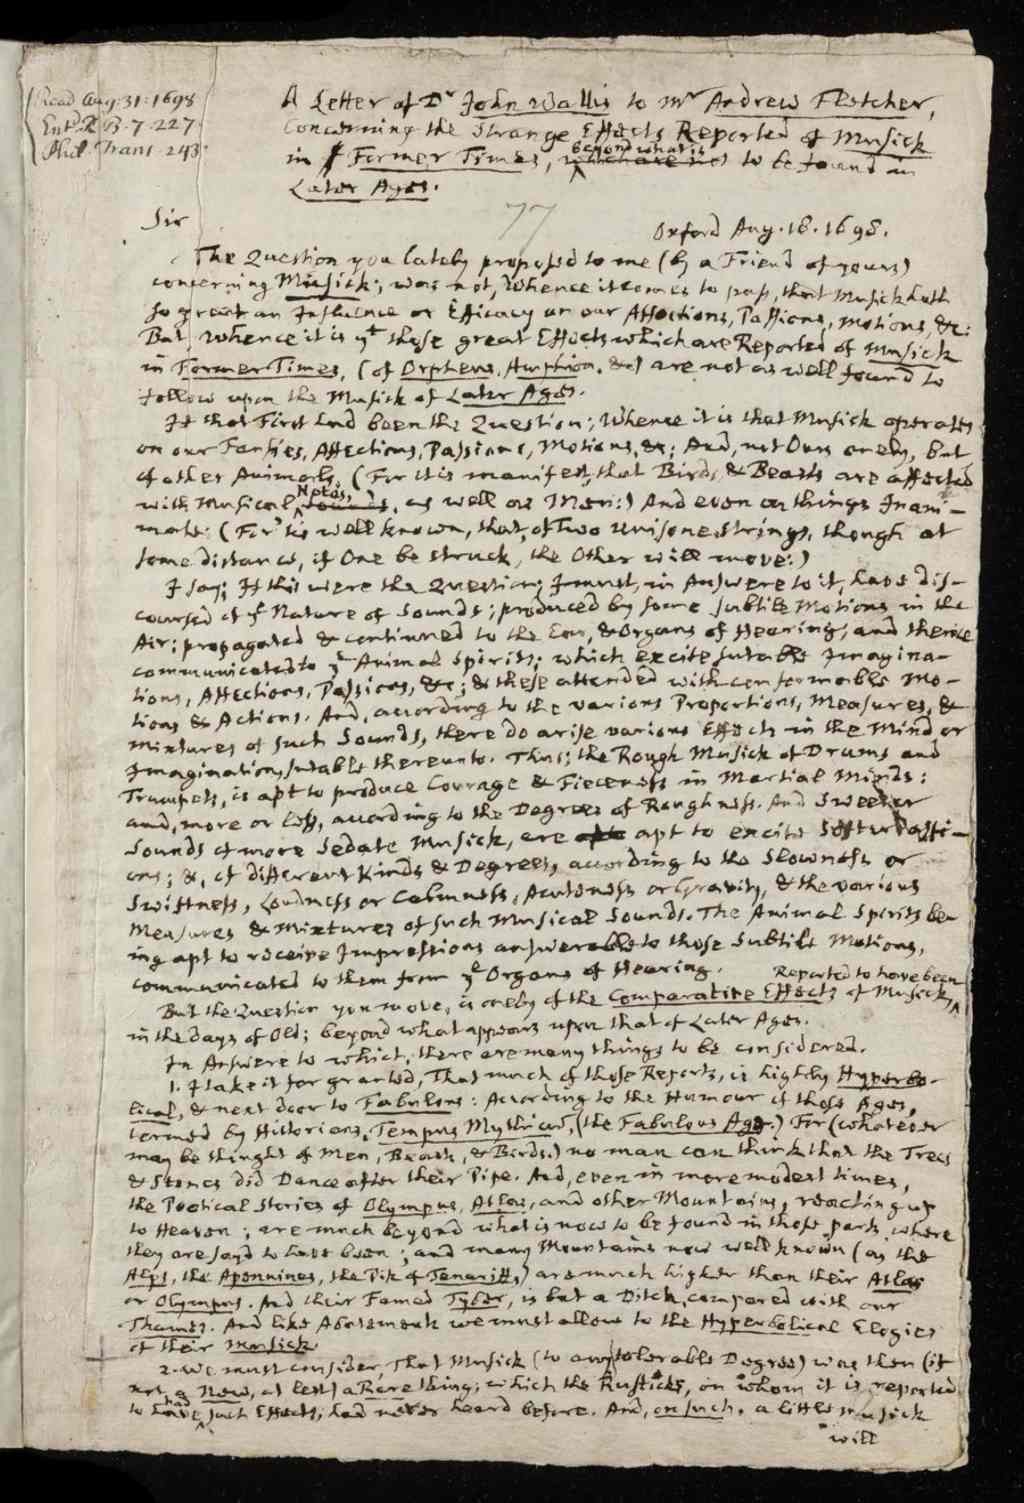 Read Aug. 31. 1698
Entd. L. B. 7. 227.
Phil. Trans. 243.
A Letter of Dr John Wallis to Mr Andrew Fletcher,
Concerning the strange Effects Reported of Musick
in Former Times, beyond what is to be found in
Later Ages.
77
Sir
Oxford Aug. 18. 1698.
The Question you lately proposed to me (by a Friend of yours)
concerning Musick; was not, Whence it comes to pass, that Musick hath
so great an Influence or Efficacy on our Affections, Passions, Motions, &c:
But, Whence it is yt these great Effects which are Reported of Musick
in Former Times, (of Orpheus, Amphion, &c) are not as well found to
follow upon the Musick of Later Ages.
If that First had been the Question; Whence it is that Musick operates
on our Fansies, Affections, Passions, Motions, &c; And, not Ours onely, but
of other Animals, (For it is manifest, that Birds, & Beasts are affected
with Musical Notes, as well as Men:) And even on things Inani-
mate: (For 'tis well known, that, of Two unisone strings, though at
some distance, if One be struck, the Other will move:)
I say; If this were the Question; I must, in Answere to it, have dis-
coursed of ye Nature of Sounds; produced by some subtile Motions in the
Air; propagated & continued to the Ear, & Organs of Hearing, and thence
communicated to ye Animal Spirits; which excite sutable Imagina-
tions, Affections, Passions, &c; & these attended with conformable Mo-
tions & Actions. And, according to the various Proportions, Measures, &
mixtures of such Sounds, there do arise various Effects in the Mind or
Imagination, sutable thereunto. Thus; the Rough Musick of Drums and
Trumpets, is apt to produce Courage & Fierceness in Martial Minds:
and, more or less, according to the Degrees of Roughness. And Sweeter
sounds of more Sedate Musick, are apt to excite Softer Passi-
ons; &, of different Kinds & Degrees, according to the Slowness or
Swiftness, Loudness or Calmness, Acuteness or Gravity, & the various
Measures & Mixtures of such Musical Sounds. The Animal Spirits be-
ing apt to receive Impressions answerable to those Subtile Motions,
communicated to them from ye Organs of Hearing.
But the Question you move, is onely of the Comparative Effects of Musick, Reported to have been
in the days of Old; beyond what appears upon that of Later Ages.
In Answere to which, there are many things to be considered.
1. I take it for granted, That much of those Reports, is highly Hyperbo-
lical, & next door to Fabulous: According to the Humour of those Ages,
termed by Historians, Tempus Mythicum, (the Fabulous Age.) For (whatever
may be thought of Men, Beasts, & Birds.) no man can think that the Trees
& Stones did Dance after their Pipe. And, even in more modest times,
the Poetical Stories of Olympus, Atlas, and other Mountains, reaching up
to Heaven; are much beyond what is now to be found in those parts, where
they are sayd to have been; and many Mountains now well known (as the
Alps, the Apennines, the Pik of Teneriffs) are much higher than their Atlas
or Olympus. And their Famed Tyber, is but a Ditch, compared with our
Thames. And like Abatement we must allow to the Hyperbolical Elogies
of their Musick.
2. We must consider, That Musick (to any tolerable Degree) was then (if
not a New, at lest) a Rare thing; which the Rusticks, on whom it is reported
to have had such Effects, had never heard before. And, on such, a little musick
will